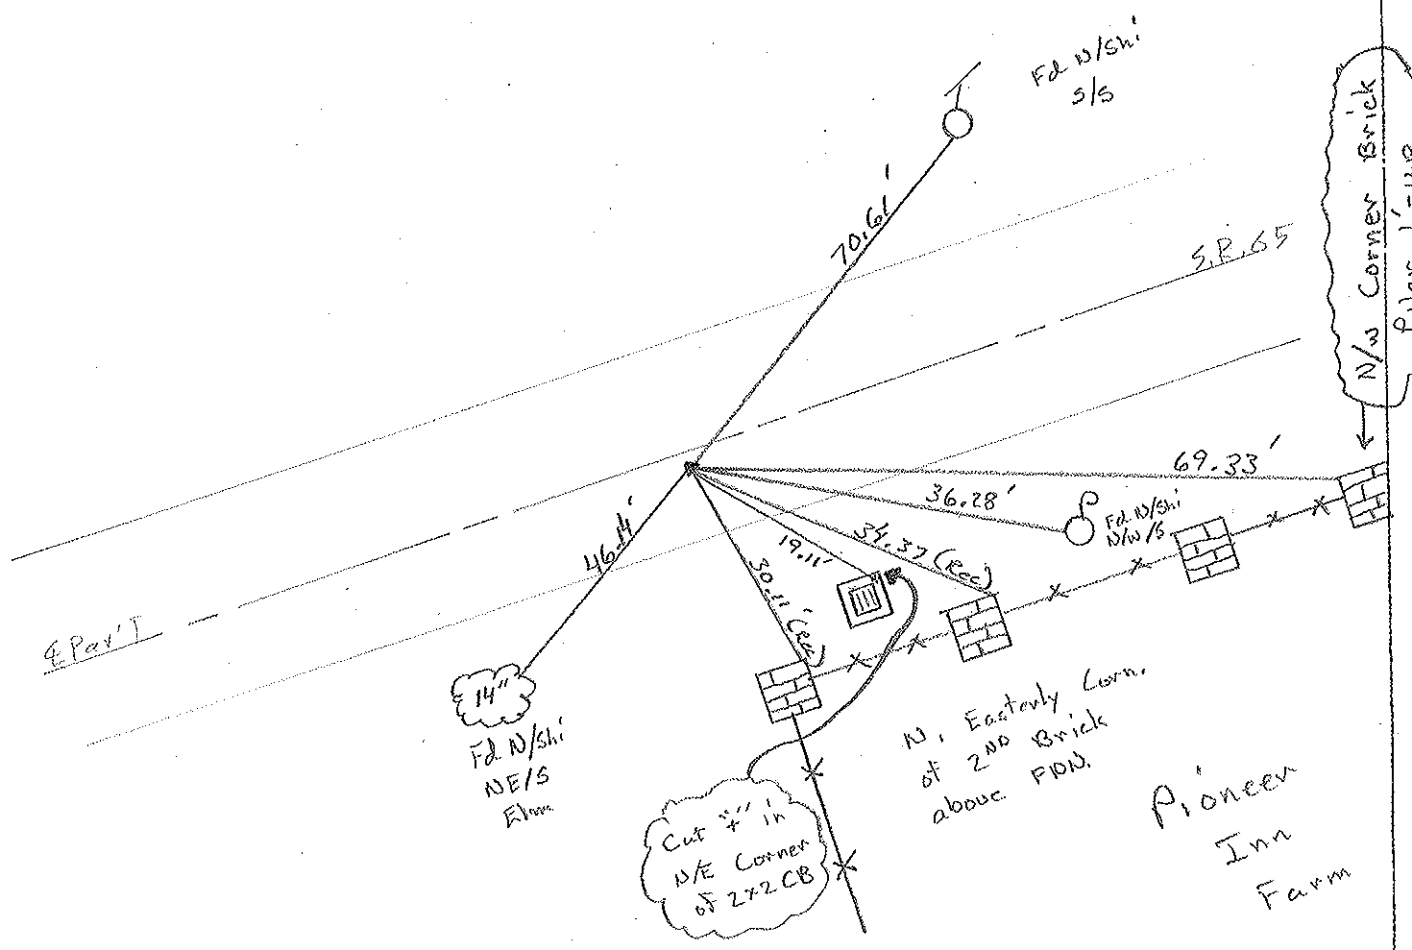 Fd N/Shi
S/S
70.61'
S.R. 65
N/W Corner Brick
69.33'
36.28'
Fd. N/Shi
N/W/S
34.37 (Rec)
19.11'
30.11' (Rec)
46.14'
℄ Pav'T
14"
Fd. N/Shi
NE/S
Elm
N. Easterly Corn.
of 2ND Brick
above FDN.
Cut "+" in
N/E Corner
of 2x2 CB
Pioneer
Inn
Farm